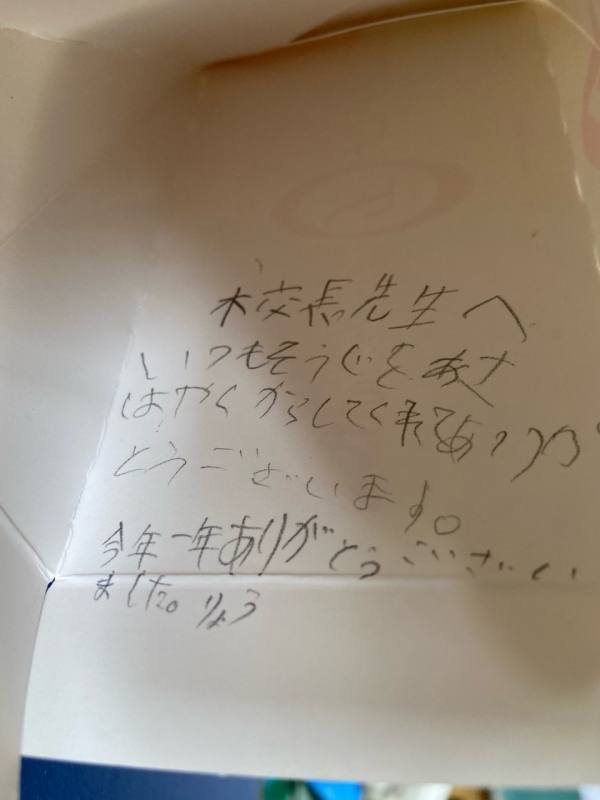 校長先生へ
いつもそうじをあさ
はやくからしてくれてありが
とうございます。
今年一年ありがとうございい
ました。りょう